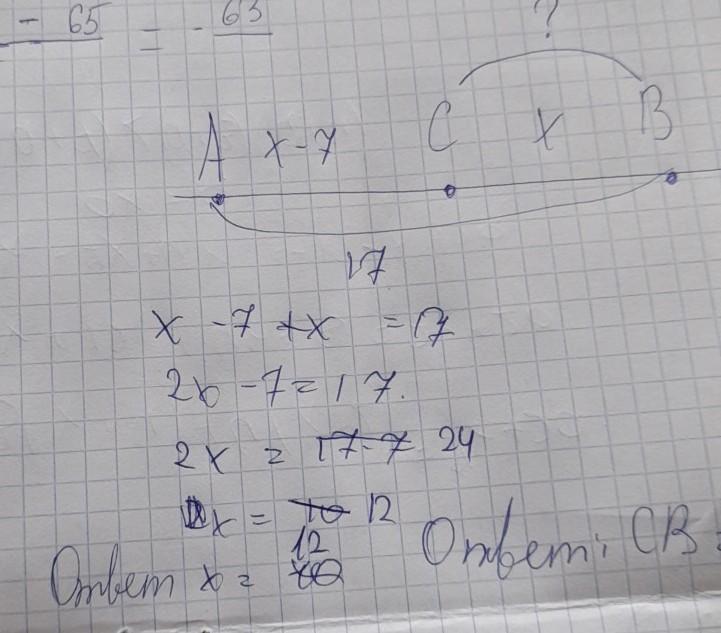 - 65 = - 63
?
A x-7 C x B
17
x - 7 + x = 17
2x - 7 = 17.
2x = 17-7 24
x = 10 12
12
Ответ x = 10 Ответ: CB =